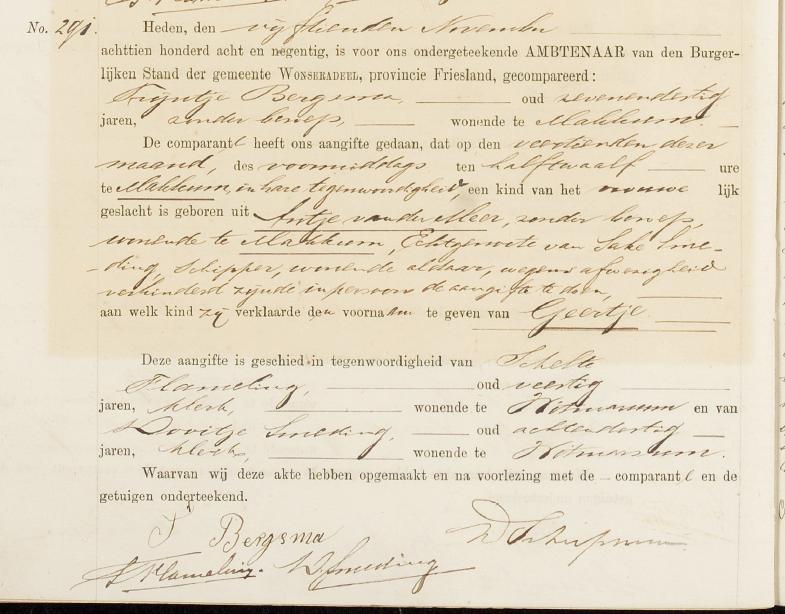 No. 291.
Heden, den vijftienden November
achttien honderd acht en negentig, is voor ons ondergeteekende AMBTENAAR van den Burger-
lijken Stand der gemeente WONSERADEEL, provincie Friesland, gecompareerd:
Trijntje Bergsma, oud zevenendertig
jaren, zonder beroep, wonende te Makkum.
De comparant heeft ons aangifte gedaan, dat op den veertienden dezer
maand, des voormiddags ten half twaalf ure
te Makkum, in hare tegenwoordigheid, een kind van het vrouwe lijk
geslacht is geboren uit Antje van der Meer, zonder beroep,
wonende te Makkum, Echtgenoote van Sake Sme-
ding, Schipper, wonende aldaar, wegens afwezigheid
verhinderd zijnde in persoon de aangifte te doen,
aan welk kind zij verklaarde den voornaam te geven van Geertje
Deze aangifte is geschied in tegenwoordigheid van Schelte
Flameling, oud veertig
jaren, klerk, wonende te Witmarsum en van
Smeding, oud achtendertig
jaren, klerk, wonende te Witmarsum.
Waarvan wij deze akte hebben opgemaakt en na voorlezing met de comparant en de
getuigen onderteekend.
T Bergsma
S Flameling. Smeding